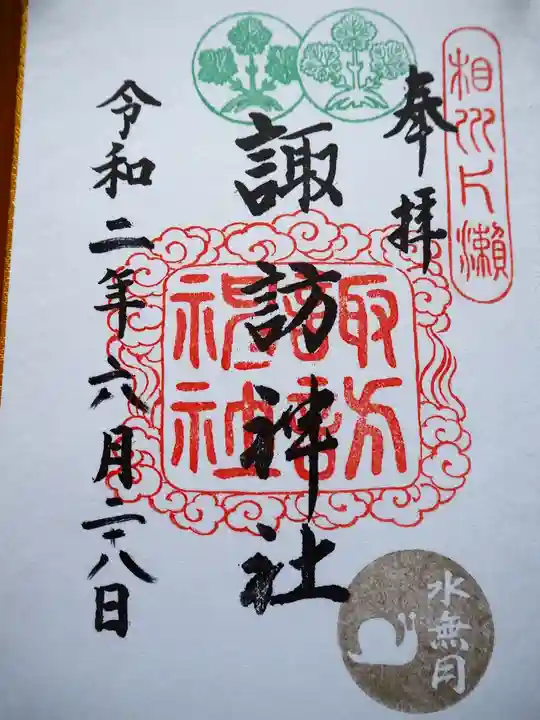 相州片瀬
奉拝
諏訪神社
諏訪
神社
令和二年六月二十八日
水無月